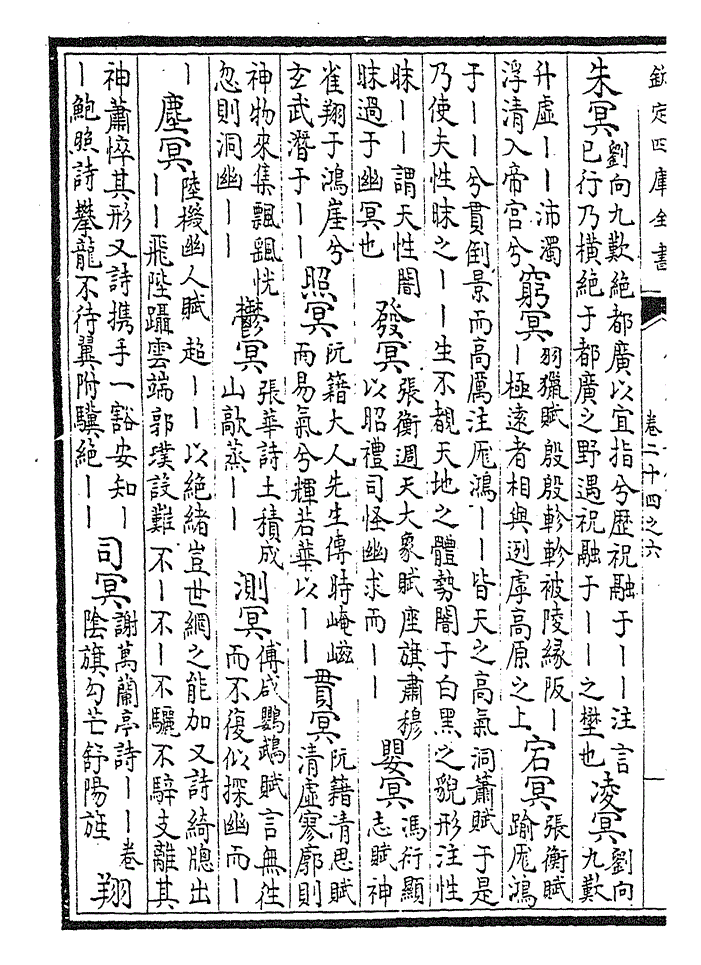 欽定四庫全書 卷二十四之六
朱冥 劉向九歎絶都廣以宜指兮歴祝融于丨丨注言
已行乃橫絶于都廣之野遇祝融于丨丨之壄也
凌冥 劉向
九歎
升虛丨丨沛濁
浮清入帝宮兮
窮冥 羽獵賦殷殷軫軫被陵緣阪丨
丨極遠者相與迾虖高原之上
宕冥 張衡賦
踰厖鴻
于丨丨兮貫倒景而高厲注厖鴻丨丨皆天之高氣洞簫賦于是
乃使夫性昧之丨丨生不覩天地之體勢闇于白黑之貌形注性
昧丨丨謂天性闇
昧過于幽冥也
發冥 張衡週天大象賦座旗肅穆
以昭禮司怪幽求而丨丨
嬰冥 馮衍顯
志賦神
雀翔于鴻崖兮
玄武潛于丨丨
照冥 阮籍大人先生傳時崦嵫
而易氣兮輝若華以丨丨
貫冥 阮籍清思賦
清虛寥廓則
神物來集飄颻恍
忽則洞幽丨丨
鬱冥 張華詩土積成
山歊蒸丨丨
測冥 傅咸鸚鵡賦言無往
而不復似探幽而丨
丨
塵冥 陸機幽人賦超丨丨以絶緒豈世網之能加又詩綺牕出
丨丨飛陛躡雲端郭璞設難不丨不丨不驪不騂支離其
神蕭悴其形又詩携手一豁安知丨
丨鮑照詩攀龍不待翼附驥絶丨丨
司冥 謝萬蘭亭詩丨丨卷
陰旗勾芒舒陽旌
翔